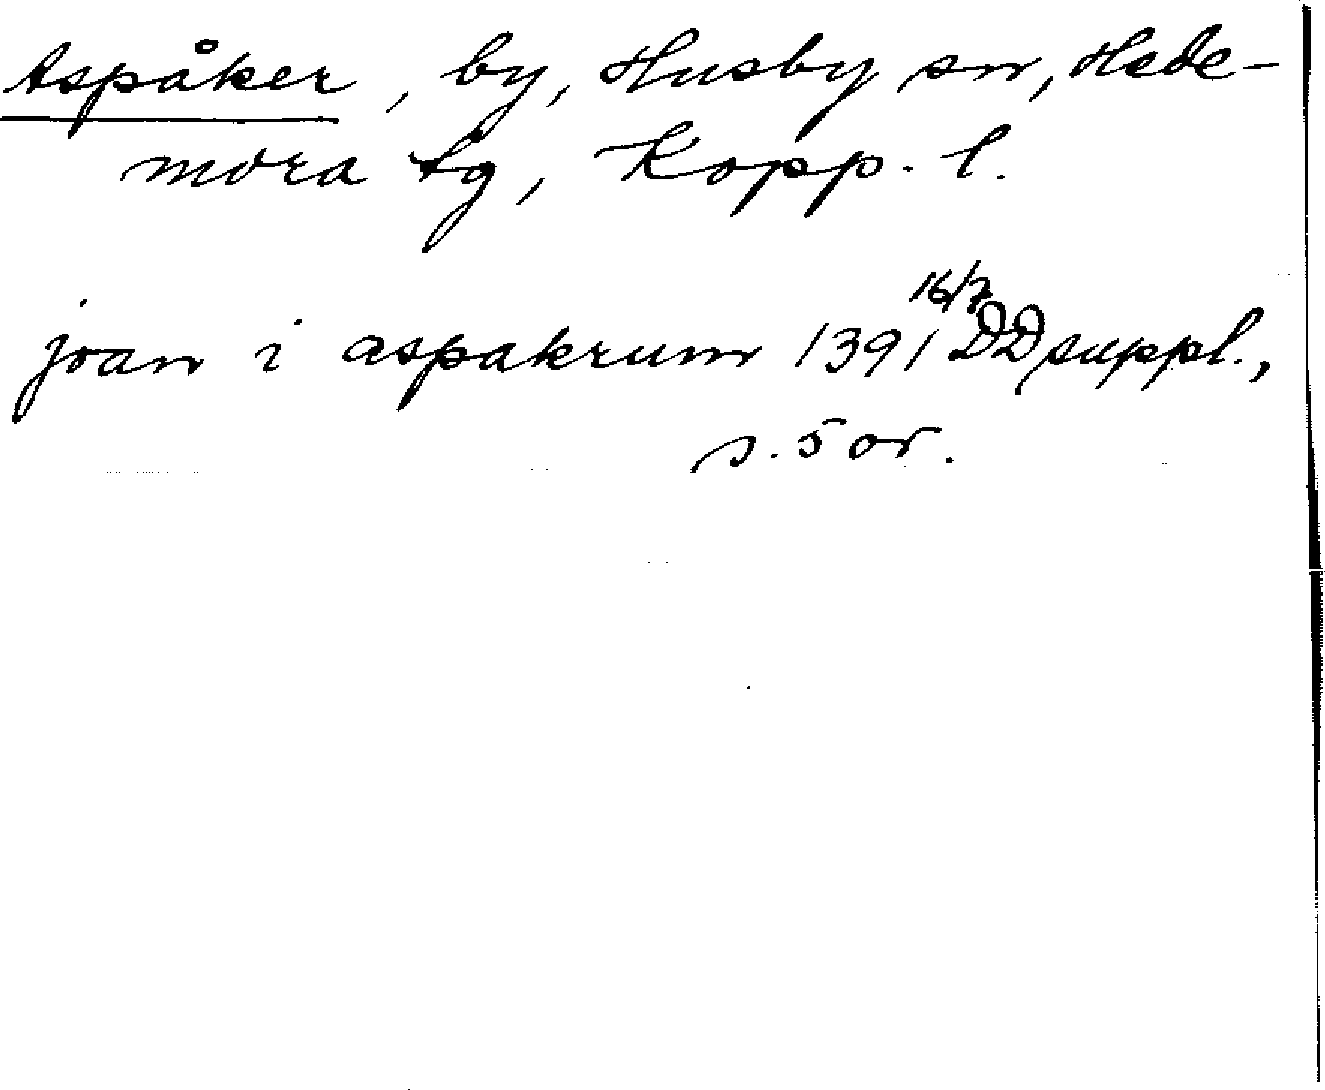 Aspåker, by, Husby sn, Hede-
mora tg, Kopp. l.
joan i aspakrum 1391 16/7 DD suppl.,
s. 5 or.